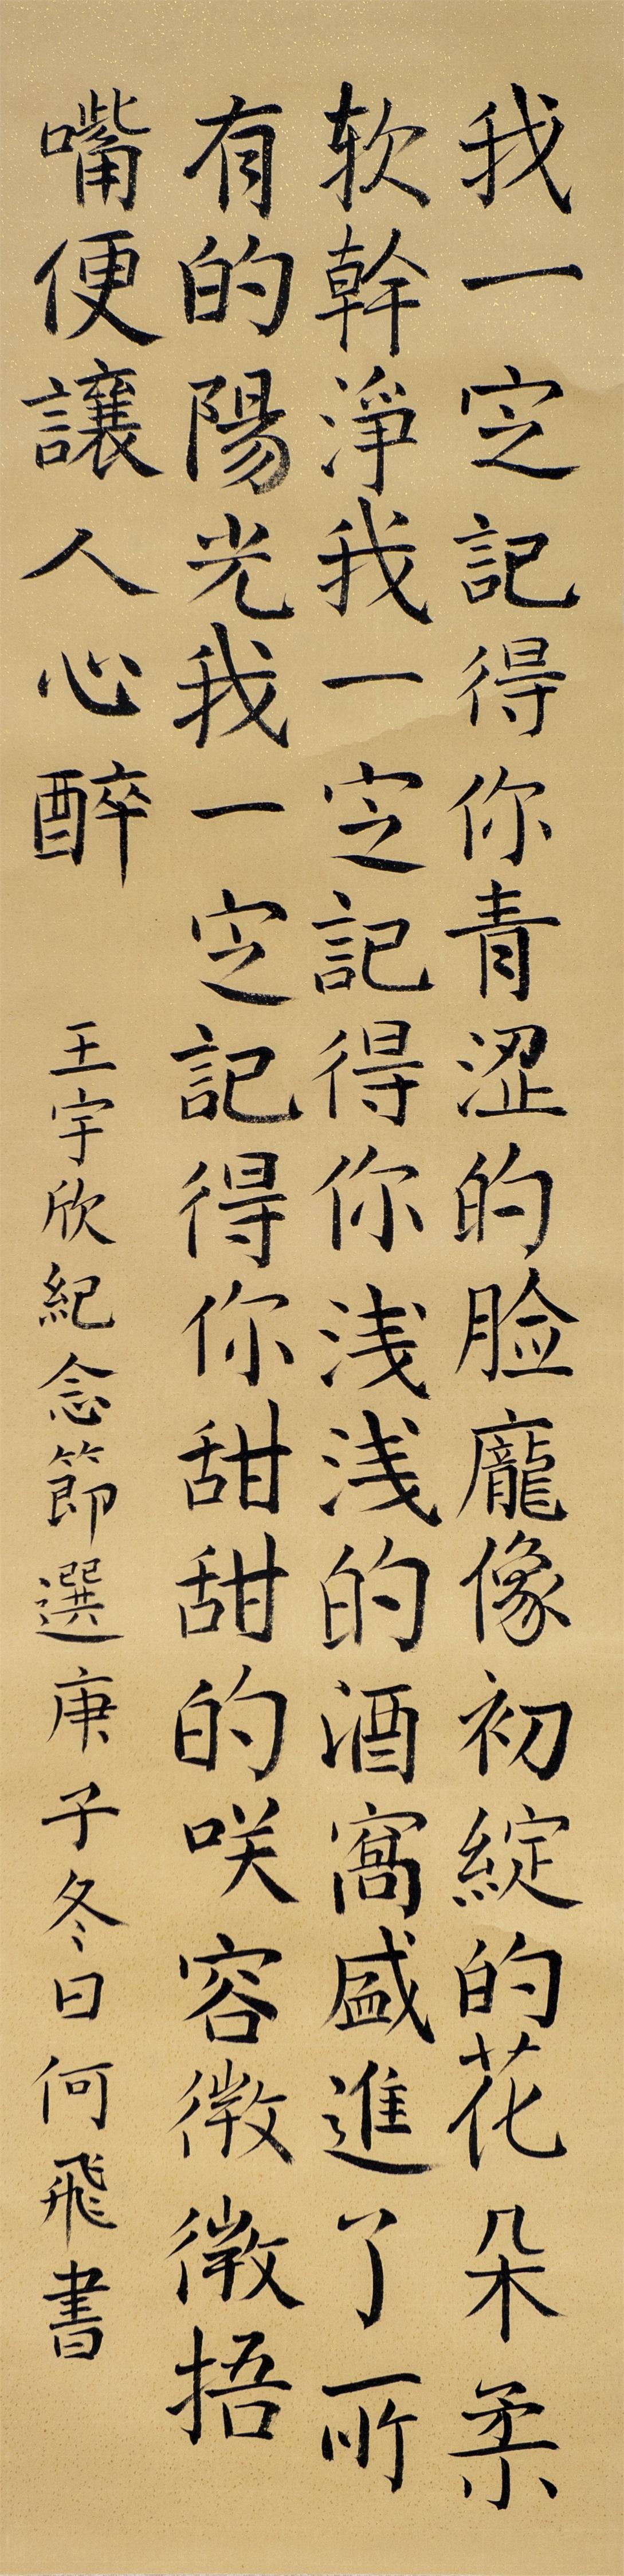 我一定記得你青涩的脸龐像初綻的花朵柔
软幹淨我一定記得你浅浅的酒窩盛進了所
有的陽光我一定記得你甜甜的咲容微微捂
嘴便讓人心醉
王宇欣紀念節選庚子冬日何飛書